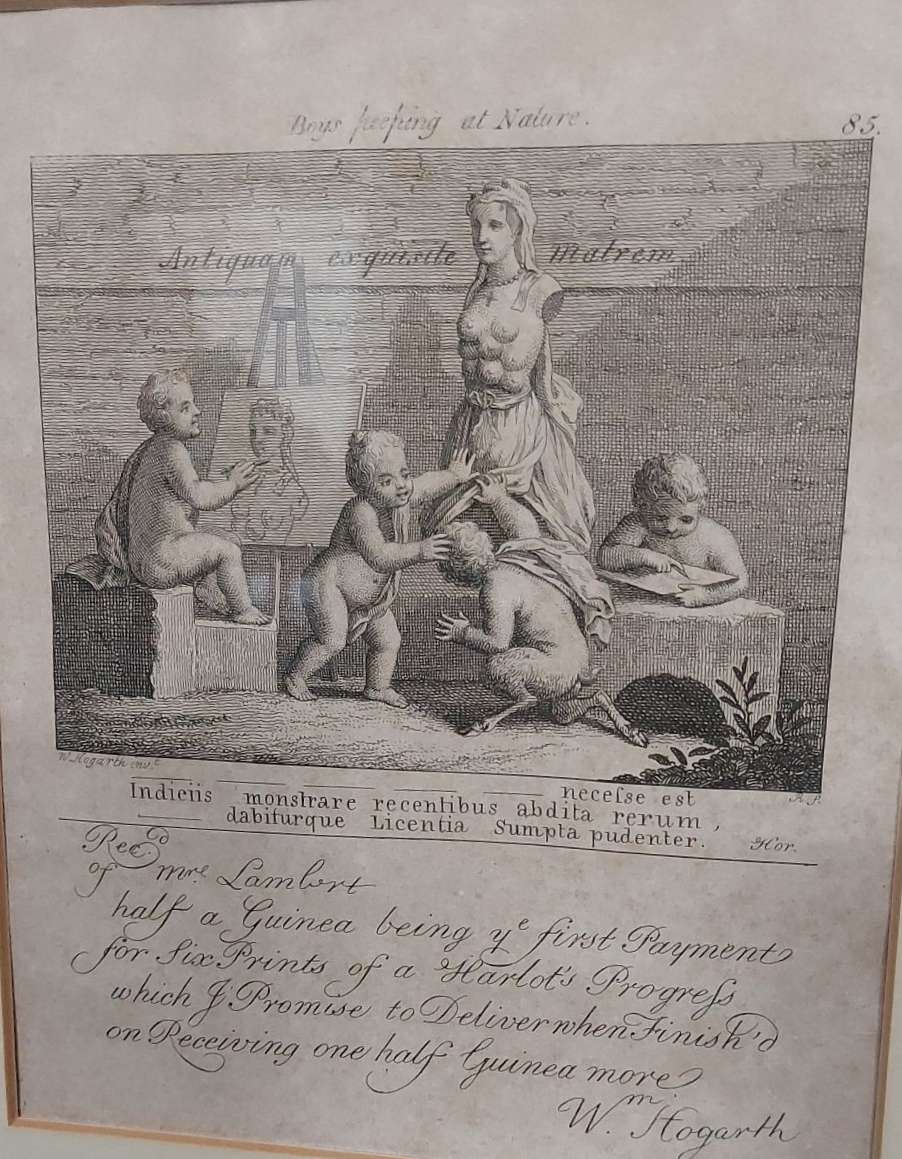 Boys peeping at Nature.
85.
Antiquam exquisite matrem
W. Hogarth inv.t
Indiciis monstrare recentibus abdita rerum, necesse est
dabiturque Licentia Sumpta pudenter. Hor.
Rec.d
of mrs. Lambert
half a Guinea being ye first Payment
for Six Prints of a Harlot's Progress
which J Promise to Deliver when Finish'd
on Receiving one half Guinea more
Wm. Hogarth